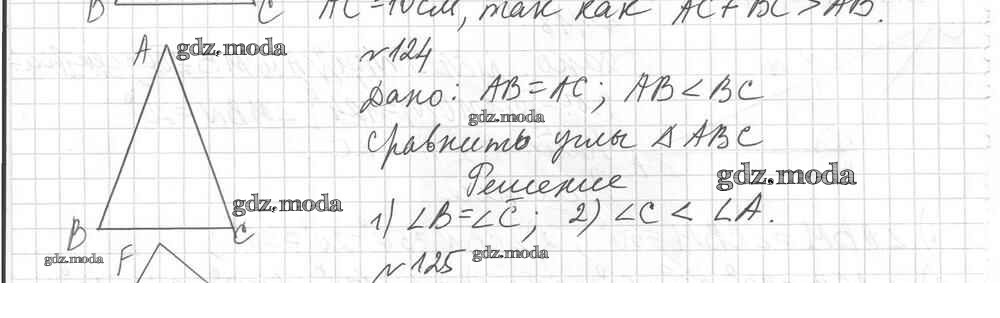 B C AC = 10 см, так как AC + BC > AB.
A gdz.moda №124
Дано: AB = AC; AB < BC
gdz.moda
Сравнить углы Δ ABC
Решение gdz.moda
gdz.moda
1) ∠B = ∠C; 2) ∠C < ∠A.
B C
gdz.moda F №125 gdz.moda